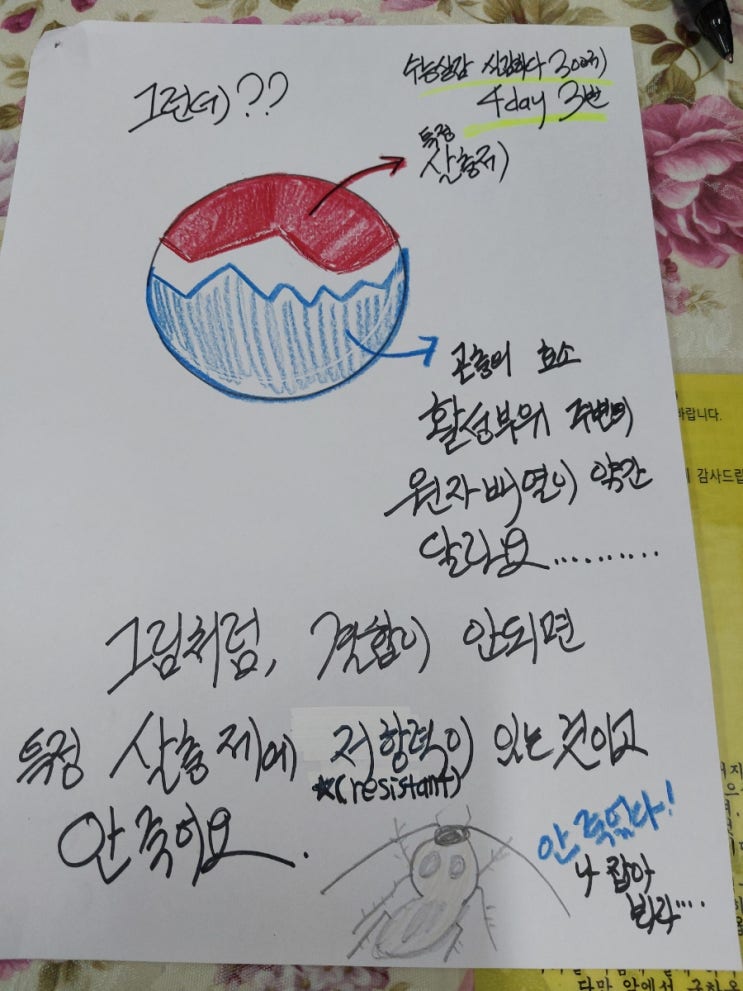 그런데??
수능실감 시작하다 30일
4day 3번
특정
살충제
곤충의 효소
활성부위 주변의
원자배열이 약간
달라요..........
그림처럼, 결합이 안되면
특정 살충제에 저항력이 있는것이고
★(resistant)
안 죽어요.
안 죽었다!
나 잡아
봐라....
바랍니다.
감사드립
다만 앞에서